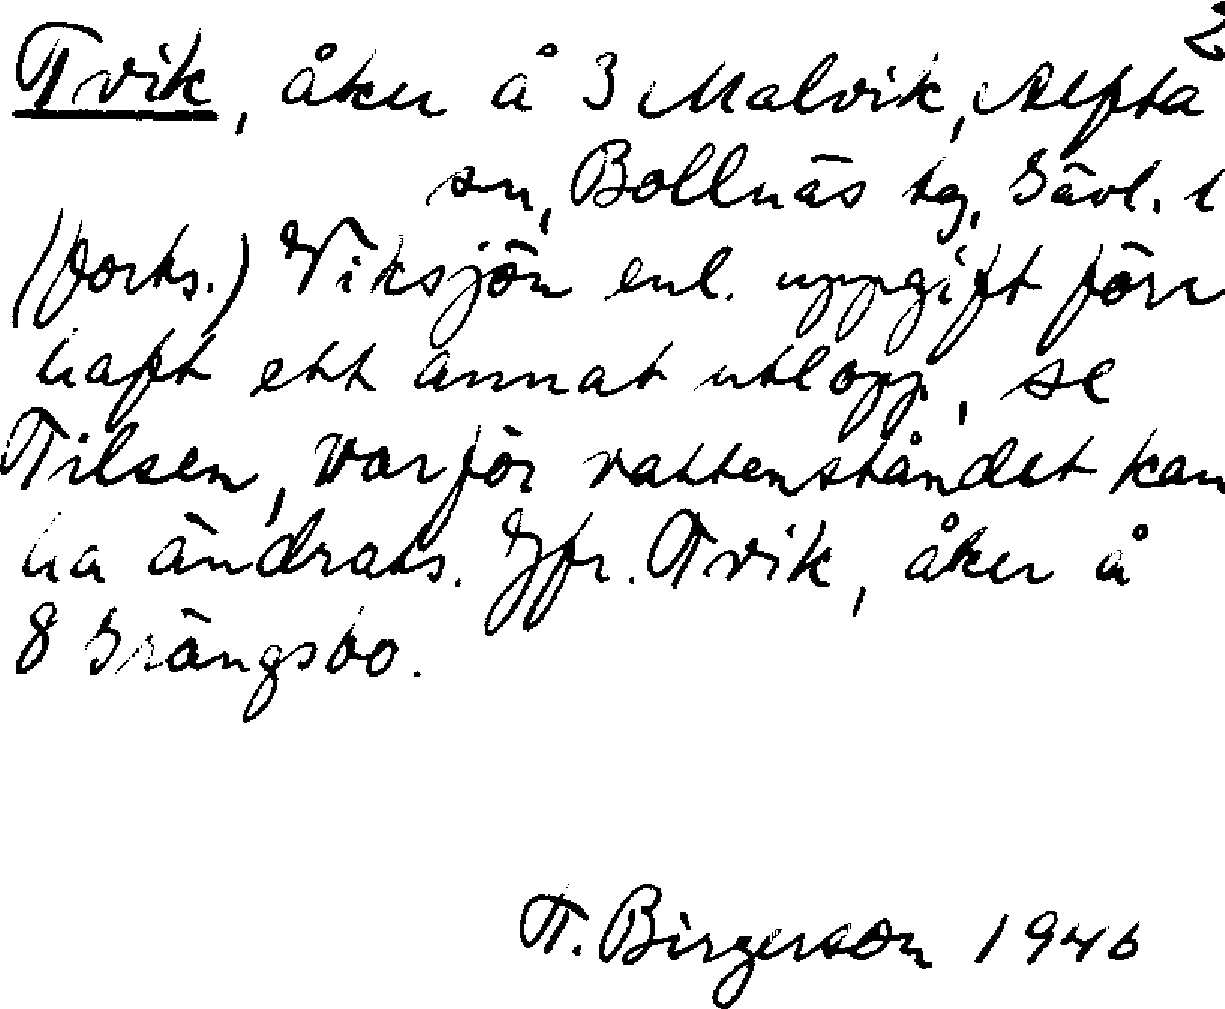 2
Tvik, åker å 3 Malvik, Alfta
sn, Bollnäs tg, Gävl. l
(forts.) Viksjön enl. uppgift förr
haft ett annat utlopp, se
Tilsen, varför vattenståndet kan
ha ändrats. Jfr. Tvik, åker å
8 Grängsbo.
T. Birgerson 1946